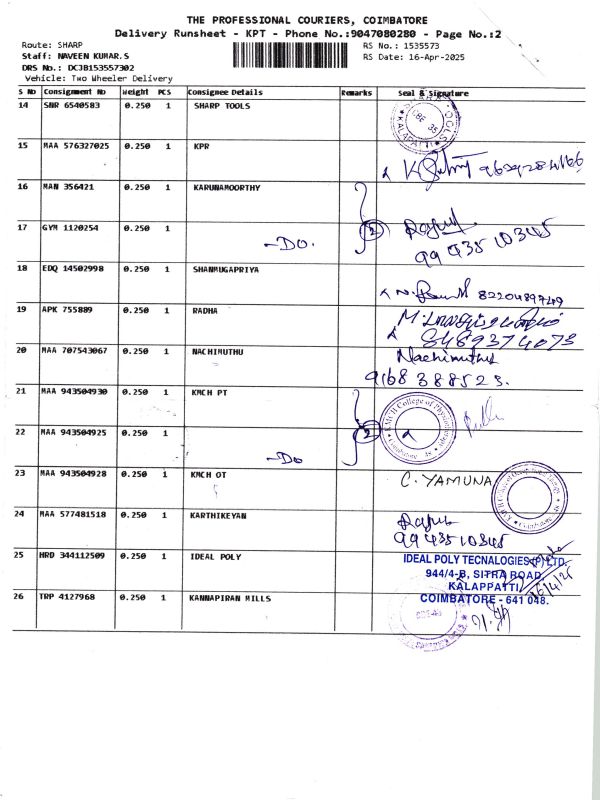 THE PROFESSIONAL COURIERS, COIMBATORE
Delivery Runsheet - KPT - Phone No.:9047080280 - Page No.:2
Route: SHARP
Staff: NAVEEN KUMAR.S
DRS No.: DCJB153557302
Vehicle: Two Wheeler Delivery
RS No.: 1535573
RS Date: 16-Apr-2025
S No Consignment No Weight PCS Consignee Details Remarks Seal & Signature
14 SNR 6540583 0.250 1 SHARP TOOLS
KALAPATTI
15 MAA 576327025 0.250 1 KPR
16 MAN 356421 0.250 1 KARUNAMOORTHY
17 GYM 1120254 0.250 1 -DO. 2
99435 10345
18 EDQ 14502998 0.250 1 SHANMUGAPRIYA
8220489749
19 APK 755889 0.250 1 RADHA
8489374073
20 MAA 707543067 0.250 1 NACHIMUTHU Nachimuthu
9168388523.
21 MAA 943504930 0.250 1 KMCH PT
KMCH College of Physiotherapy
22 MAA 943504925 0.250 1 -DO 2
23 MAA 943504928 0.250 1 KMCH OT C. YAMUNA
24 MAA 577481518 0.250 1 KARTHIKEYAN
99435 10345
25 HRD 344112509 0.250 1 IDEAL POLY IDEAL POLY TECNALOGIES(P)LTD.
944/4-B, SITRA ROAD,
KALAPPATTI,
COIMBATORE - 641 048.
16/4/25
26 TRP 4127968 0.250 1 KANNAPIRAN MILLS